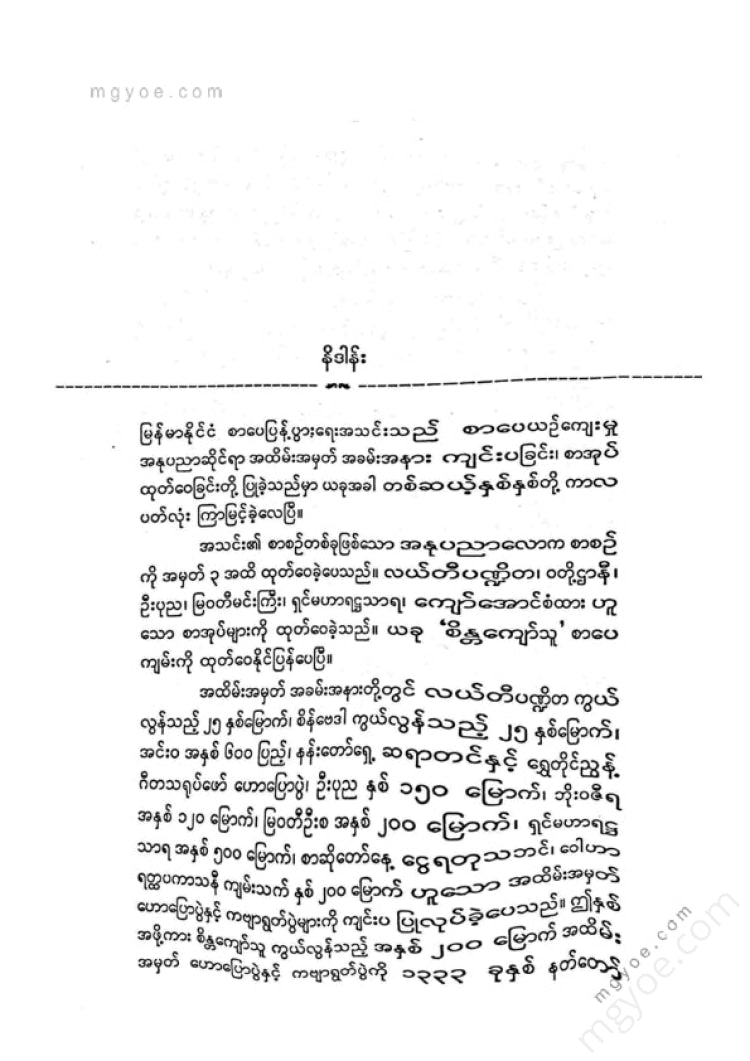 mgyoe.com
နိဒါန်း
မြန်မာနိုင်ငံ စာပေပြန့်ပွားရေးအသင်းသည် စာပေယဉ်ကျေးမှု
အနုပညာဆိုင်ရာ အထိမ်းအမှတ် အခမ်းအနား ကျင်းပခြင်း၊ စာအုပ်
ထုတ်ဝေခြင်းတို့ ပြုခဲ့သည်မှာ ယခုအခါ တစ်ဆယ့်နှစ်နှစ်တို့ ကာလ
ပတ်လုံး ကြာမြင့်ခဲ့လေပြီ။
အသင်း၏ စာစဉ်တစ်ခုဖြစ်သော အနုပညာလောက စာစဉ်
ကို အမှတ် ၃ အထိ ထုတ်ဝေခဲ့ပေသည်။ လယ်တီပဏ္ဍိတ၊ ဝတိုဌာနီ၊
ဦးပုည၊ မြဝတီမင်းကြီး၊ ရှင်မဟာရဋ္ဌသာရ၊ ကျော်အောင်စံထား ဟူ
သော စာအုပ်များကို ထုတ်ဝေခဲ့သည်။ ယခု ‘စိန္တကျော်သူ’ စာပေ
ကျမ်းကို ထုတ်ဝေနိုင်ပြန်ပေပြီ။
အထိမ်းအမှတ် အခမ်းအနားတို့တွင် လယ်တီပဏ္ဍိတ ကွယ်
လွန်သည့် ၂၅ နှစ်မြောက်၊ စိန်ဗေဒါ ကွယ်လွန်သည့် ၂၅ နှစ်မြောက်၊
အင်းဝ အနှစ် ၆၀၀ ပြည့်၊ နန်းတော်ရှေ့ ဆရာတင်နှင့် ရွှေတိုင်ညွန့်
ဂီတသရုပ်ဖော် ဟောပြောပွဲ၊ ဦးပုည နှစ် ၁၅၀ မြောက်၊ ဘိုးဝဇီရ
အနှစ် ၁၂၀ မြောက်၊ မြဝတီဦးစ အနှစ် ၂၀၀ မြောက်၊ ရှင်မဟာရဋ္ဌ
သာရ အနှစ် ၅၀၀ မြောက်၊ စာဆိုတော်နေ့ ငွေရတုသဘင်၊ ဝေါဟာ
ရတ္ထပကာသနီ ကျမ်းသက် နှစ် ၂၀၀ မြောက် ဟူသော အထိမ်းအမှတ်
ဟောပြောပွဲနှင့် ကဗျာရွတ်ပွဲများကို ကျင်းပ ပြုလုပ်ခဲ့ပေသည်။ ဤနှစ်
အဖို့ကား စိန္တကျော်သူ ကွယ်လွန်သည့် အနှစ် ၂၀၀ မြောက် အထိမ်း
အမှတ် ဟောပြောပွဲနှင့် ကဗျာရွတ်ပွဲကို ၁၃၃၃ ခုနှစ် နတ်တော်
mgyoe.com
mgyoe.com